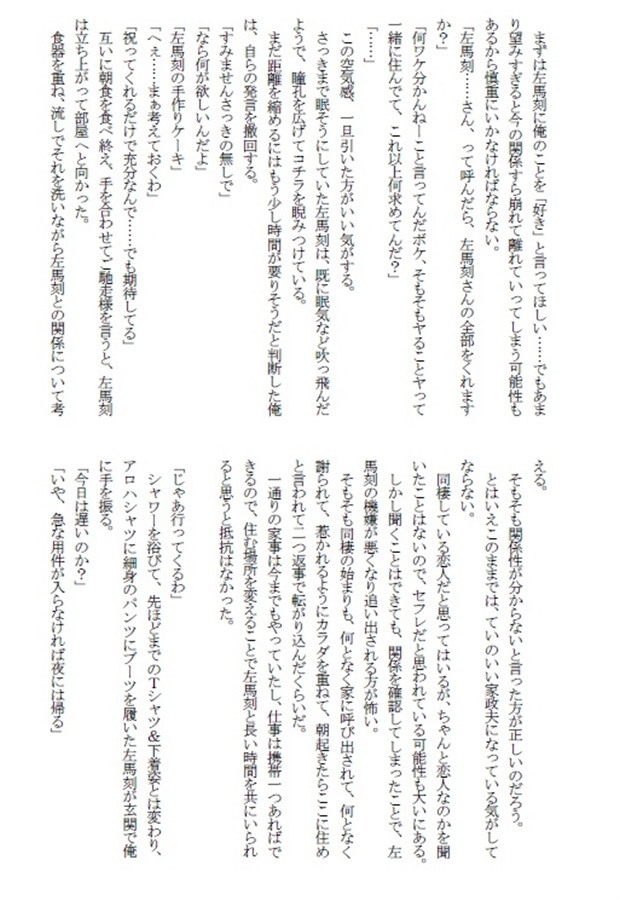 まずは左馬刻に俺のことを「好き」と言ってほしい……でもあま
り望みすぎると今の関係すら崩れて離れていってしまう可能性も
あるから慎重にいかなければならない。
「左馬刻……さん、って呼んだら、左馬刻さんの全部をくれます
か？」
「何ワケ分かんねーこと言ってんだボケ、そもそもヤることヤって
一緒に住んでて、これ以上何求めてんだ？」
「……」
　この空気感、一旦引いた方がいい気がする。
　さっきまで眠そうにしていた左馬刻は、既に眠気など吹っ飛んだ
ようで、瞳孔を広げてコチラを睨みつけている。
　まだ距離を縮めるにはもう少し時間が要りそうだと判断した俺
は、自らの発言を撤回する。
「すみませんさっきの無しで」
「なら何が欲しいんだよ」
「左馬刻の手作りケーキ」
「へぇ……まぁ考えておくわ」
「祝ってくれるだけで充分なんで……でも期待してる」
　互いに朝食を食べ終え、手を合わせてご馳走様を言うと、左馬刻
は立ち上がって部屋へと向かった。
　食器を重ね、流しでそれを洗いながら左馬刻との関係について考
える。
　そもそも関係性が分からないと言った方が正しいのだろう。
　とはいえこのままでは、ていのいい家政夫になっている気がして
ならない。
　同棲している恋人だと思ってはいるが、ちゃんと恋人なのかを聞
いたことはないので、セフレだと思われている可能性も大いにある。
　しかし聞くことはできても、関係を確認してしまったことで、左
馬刻の機嫌が悪くなり追い出される方が怖い。
　そもそも同棲の始まりも、何となく家に呼び出されて、何となく
謝られて、惹かれるようにカラダを重ねて、朝起きたらここに住め
と言われて二つ返事で転がり込んだくらいだ。
　一通りの家事は今までもやっていたし、仕事は携帯一つあればで
きるので、住む場所を変えることで左馬刻と長い時間を共にいられ
ると思うと抵抗はなかった。
「じゃあ行ってくるわ」
　シャワーを浴びて、先ほどまでのＴシャツ＆下着姿とは変わり、
アロハシャツに細身のパンツにブーツを履いた左馬刻が玄関で俺
に手を振る。
「今日は遅いのか？」
「いや、急な用件が入らなければ夜には帰る」